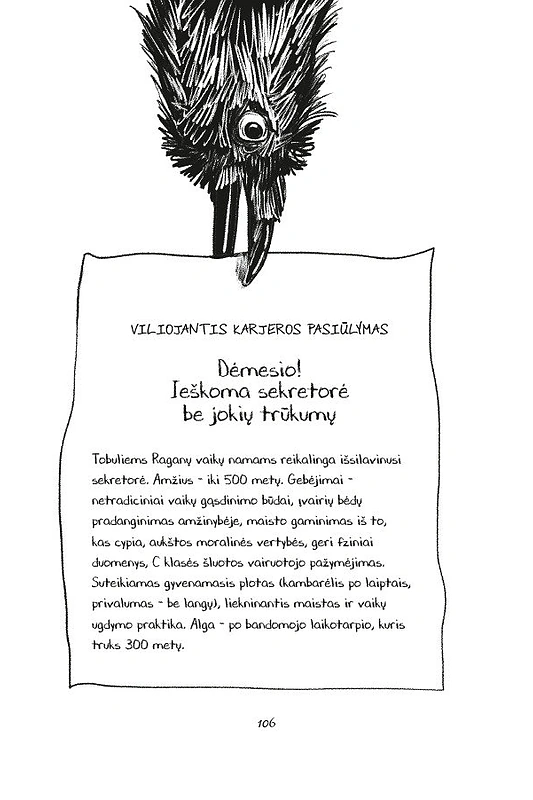 VILIOJANTIS KARJEROS PASIŪLYMAS
Dėmesio!
Ieškoma sekretorė
be jokių trūkumų
Tobuliems Raganų vaikų namams reikalinga išsilavinusi
sekretorė. Amžius - iki 500 metų. Gebėjimai -
netradiciniai vaikų gąsdinimo būdai, įvairių bėdų
pradanginimas amžinybėje, maisto gaminimas iš to,
kas cypia, aukštos moralinės vertybės, geri fziniai
duomenys, C klasės šluotos vairuotojo pažymėjimas.
Suteikiamas gyvenamasis plotas (kambarėlis po laiptais,
privalumas - be langų), liekninantis maistas ir vaikų
ugdymo praktika. Alga - po bandomojo laikotarpio, kuris
truks 300 metų.
106